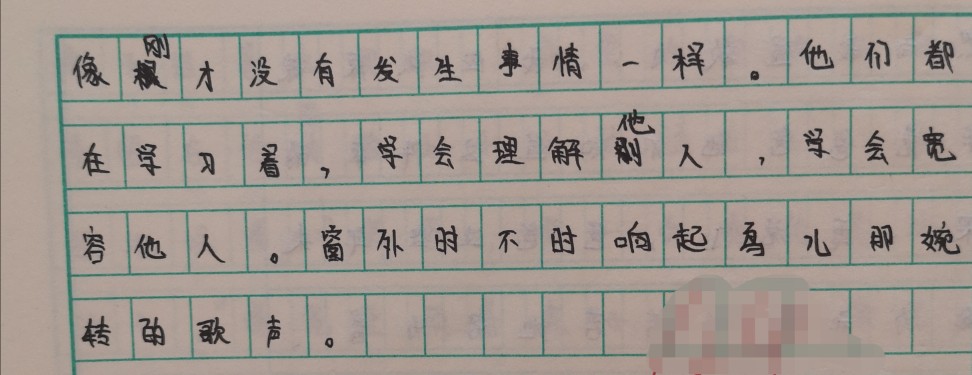 像刚才没有发生事情一样。他们都
在学习着，学会理解他人，学会宽
容他人。窗外时不时响起鸟儿那婉
转的歌声。